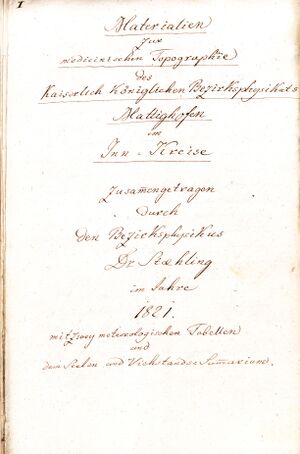 1
Materialien
zur
medicinischen Topographie
des
Kaiserlich Königlichen Bezirksphysikats
Mattighofen
im
Inn-Kreise
zusamengetragen
durch
den Bezirksphysikus
Dr Stæhling
im Jahre
1821.
mit zwey meteorologischen Tabellen
und
dem Seelen und Viehstands Sumarium.